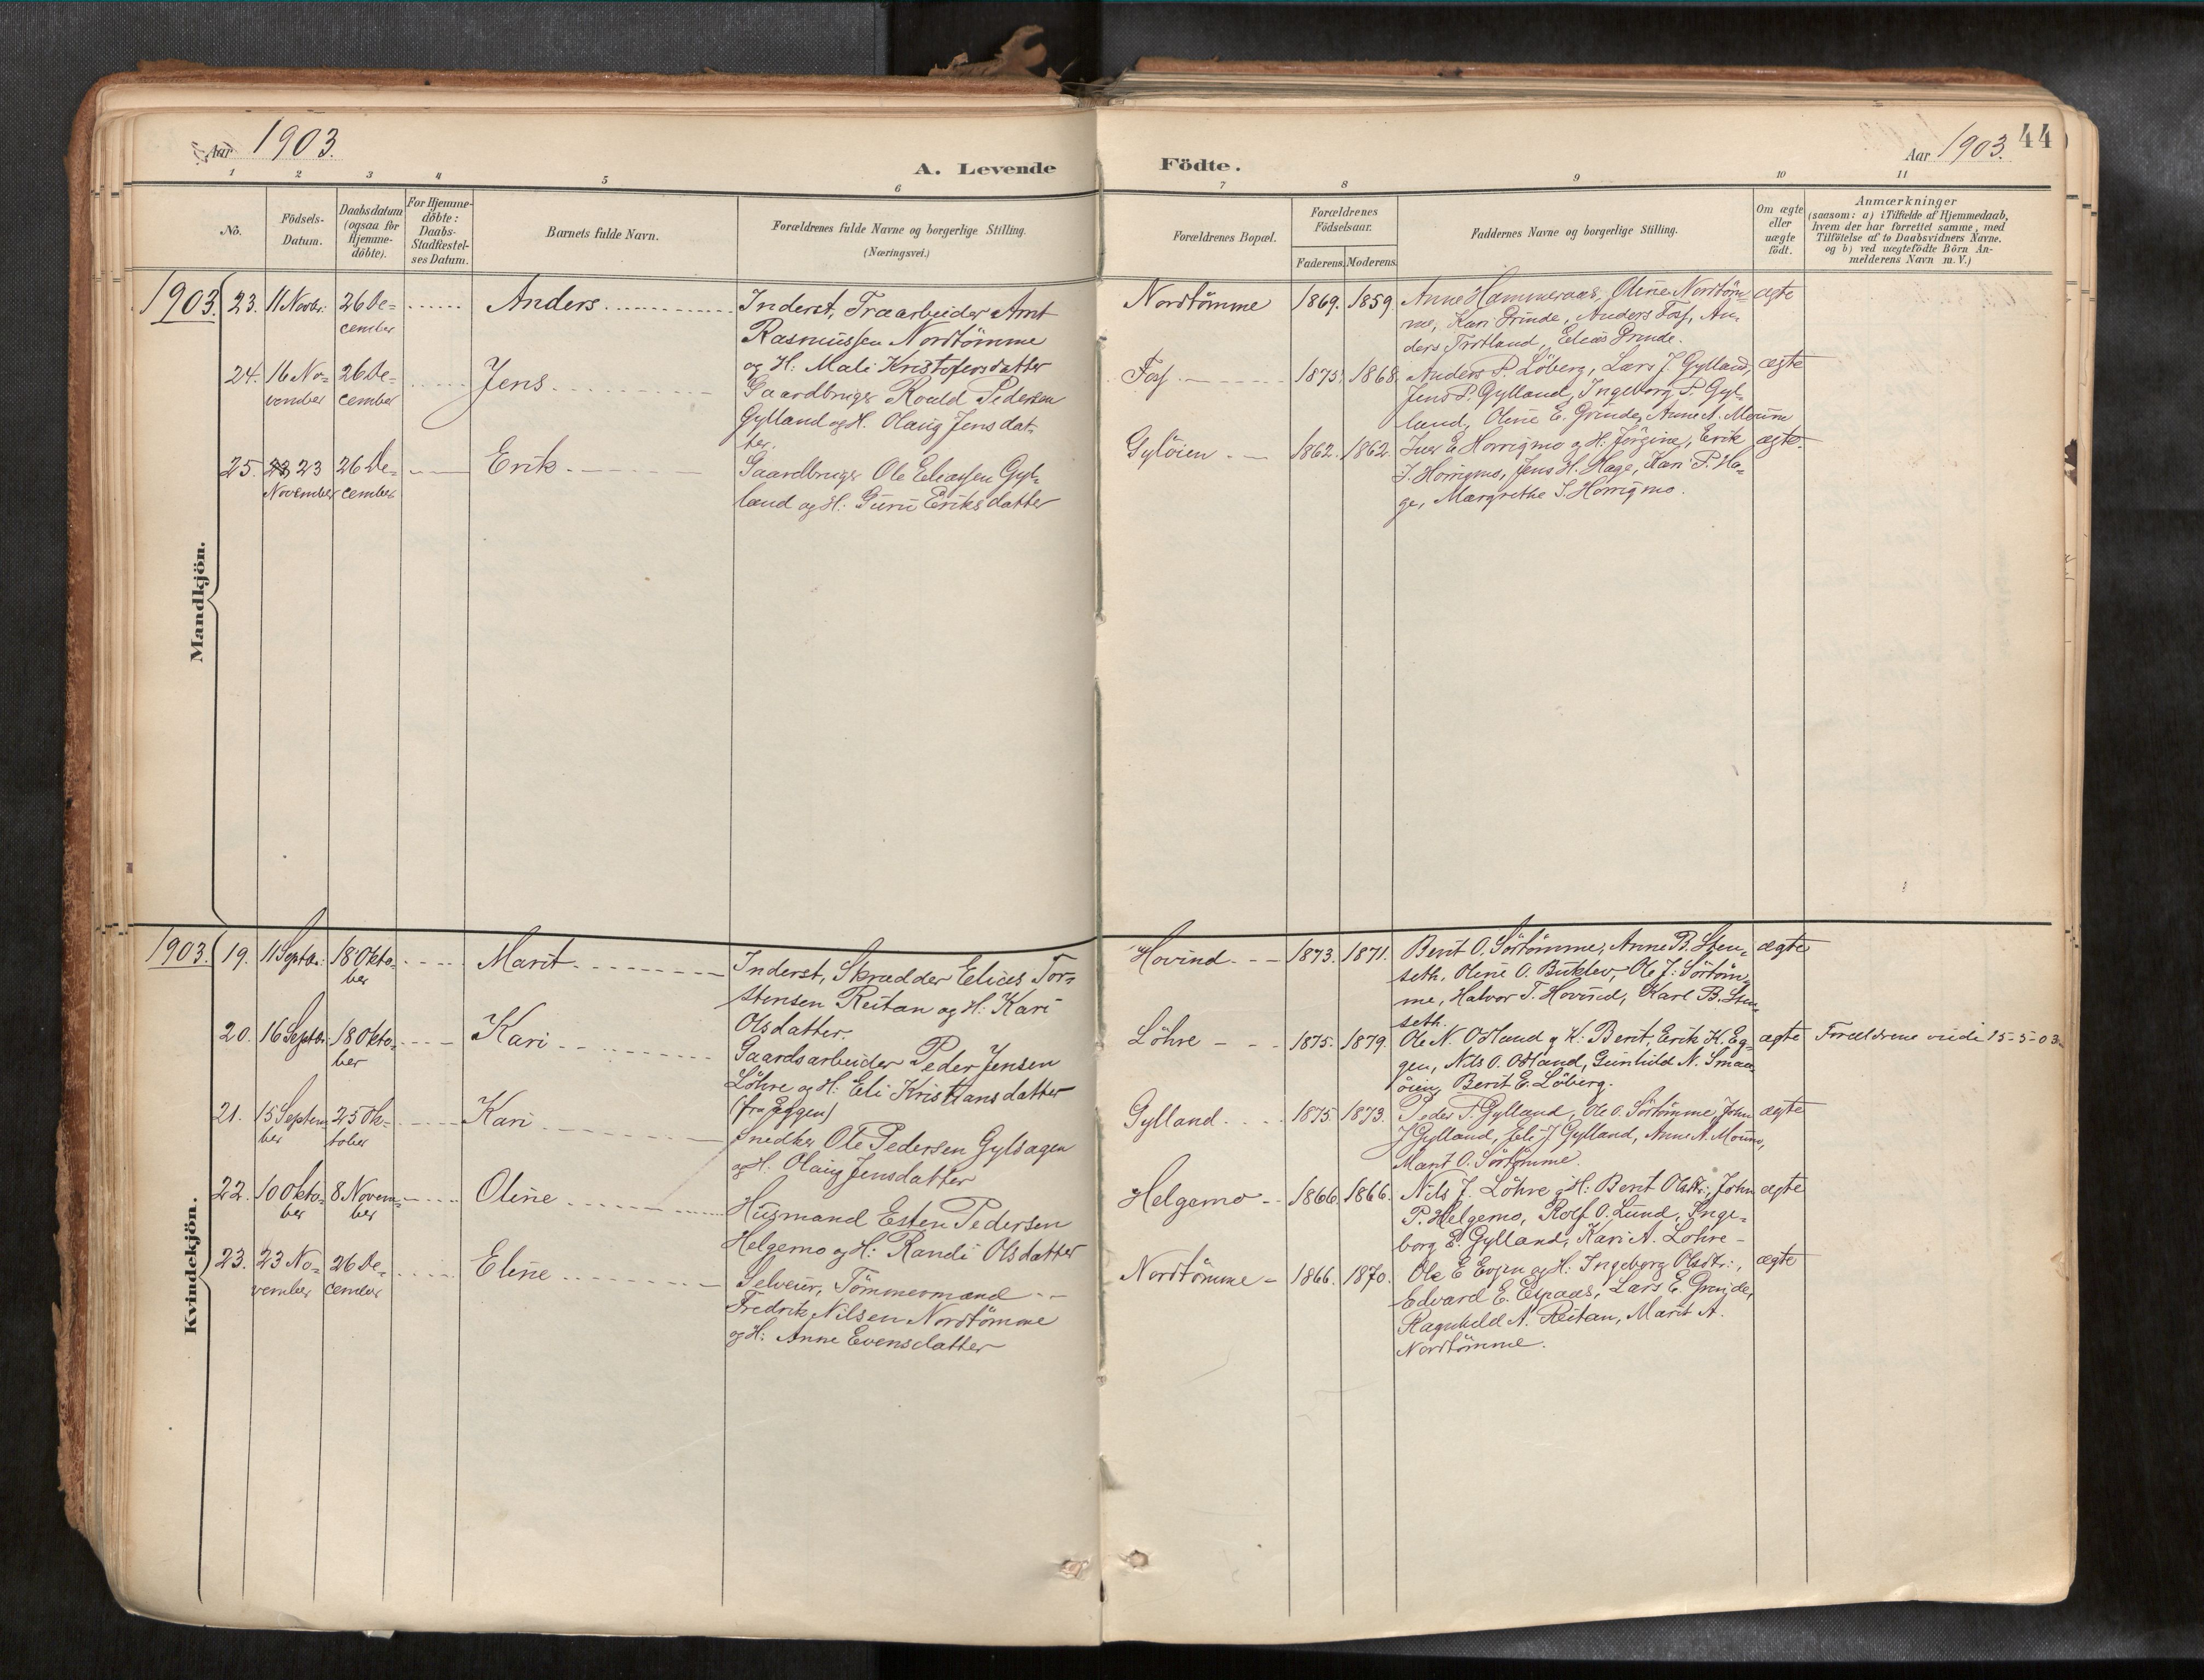 Aar 1903.
A. Levende
Födte.
Aar 1903. 44
1 2 3 4 5 6 7 8 9 10 11
No.
Födsels-
Datum.
Daabsdatum
(ogsaa for
Hjemme-
döbte).
For Hjemme-
döbte:
Daabs-
Stadfæstel-
ses Datum.
Barnets fulde Navn.
Forældrenes fulde Navne og borgerlige Stilling.
(Næringsvei.)
Forældrenes Bopæl.
Forældrenes
Födselsaar.
Faderens. Moderens.
Faddernes Navne og borgerlige Stilling.
Om ægte
eller
uægte
födt.
Anmærkninger
(saasom: a) i Tilfælde af Hjemmedaab,
hvem der har forrettet samme, med
Tilföielse af to Daabsvidners Navne.
og b) ved uægtefödte Börn An-
melderens Navn m. V.)
Mandkjön.
1903. 23. 11 Novbr. 26 De=
cember
Anders
Inderst, Træarbeider Arnt
Rasmussen Nordtömme
og H. Mali Kristofersdatter
Nordtömme 1869. 1859.
Anne Hammeraas, Oline Nordtöm=
me, Kari Grinde, Anders Fosf, An-
ders Tirtland, Elias Grinde.
ægte
24. 16 No=
vember
26 De=
cember
Jens
Gaardbruger Roald Pedersen
Gylland og H. Olaug Jensdat-
ter.
Fosf 1875. 1868.
Anders P. Löberg, Lars J. Gylland,
Jens P. Gylland, Ingeborg P. Gyl=
land, Oline E. Grinde, Anne A. Moum
ægte
25. 23
November
26 De=
cember
Erik
Gaardbruger Ole Eliassen Gyl=
land og H. Guru Eriksdatter
Gylöien 1862. 1862.
Iver E. Horrigmo og H. Jörgine, Erik
J. Horrigmo, Jens H. Hage, Kari P. Ha=
ge, Margrethe S. Horrigmo.
ægte
Kvindekjön.
1903. 19. 11 Septbr. 18 Okto-
ber
Marit
Inderst, Skrædder Elias Tor=
stensen Reitan og H. Kari
Olsdatter.
Hovind 1873. 1871.
Berit O. Sörtömme, Anne B. Sten=
seth, Oline O. Buklev, Ole J. Sörtöm-
me, Halvor T. Hovind, Karl B. Sten
seth.
ægte
20. 16 Septbr. 18 Okto-
ber
Kari
Gaardsarbeider Peder Jensen
Löhre og H. Eli Kristiansdatter
(fra Eggen)
Löhre 1875. 1879.
Ole N. Odland og K. Berit, Erik K. Eg=
gen, Nils O. Odland, Gunhild N. Smaa
öien, Berit E. Löberg.
ægte
Forældrene viede 15-5-03.
21. 15 Septem
ber
25 Ok-
tober
Kari
Snedker Ole Pedersen Gylhagen
og H. Olaug Jensdatter
Gylland 1875. 1873.
Peder T. Gylland, Ole O. Sörtömme, John
J. Gylland, Eli J. Gylland, Anne A. Moum,
Marit O. Sörtömme.
ægte
22. 10 Okto-
ber
8 Novem-
ber
Oline
Husmand Esten Pedersen
Helgemo og H. Randi Olsdatter
Helgemo 1866. 1866.
Nils J. Löhre og H. Berit Olsdtr., John
P. Helgemo, Rolf O. Lund, Inge=
borg E. Gylland, Kari A. Lohre
ægte
23. 23 No=
vember
26 De=
cember
Eline
Selveier, Tömmermand
Fredrik Nilsen Nordtömme
og H. Anne Evensdatter
Nordtömme 1866. 1870.
Ole E Evjen og H. Ingeborg Olsdtr.,
Edvard E. Espaas, Lars E. Grinde,
Ragnhild A. Reitan, Marit A.
Nordtömme.
ægte